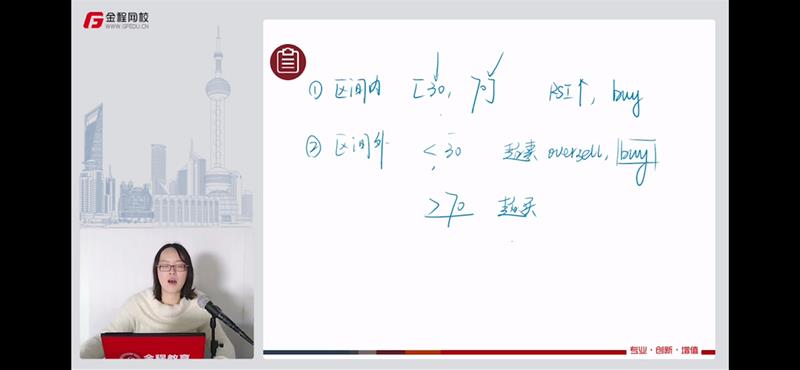 金程网校
WWW.GFEDU.CN
① 区间内 [30, 70] RSI↑, buy
② 区间外 < 30 超卖 oversell, buy
> 70 超买
金程教育
专业·创新·增值